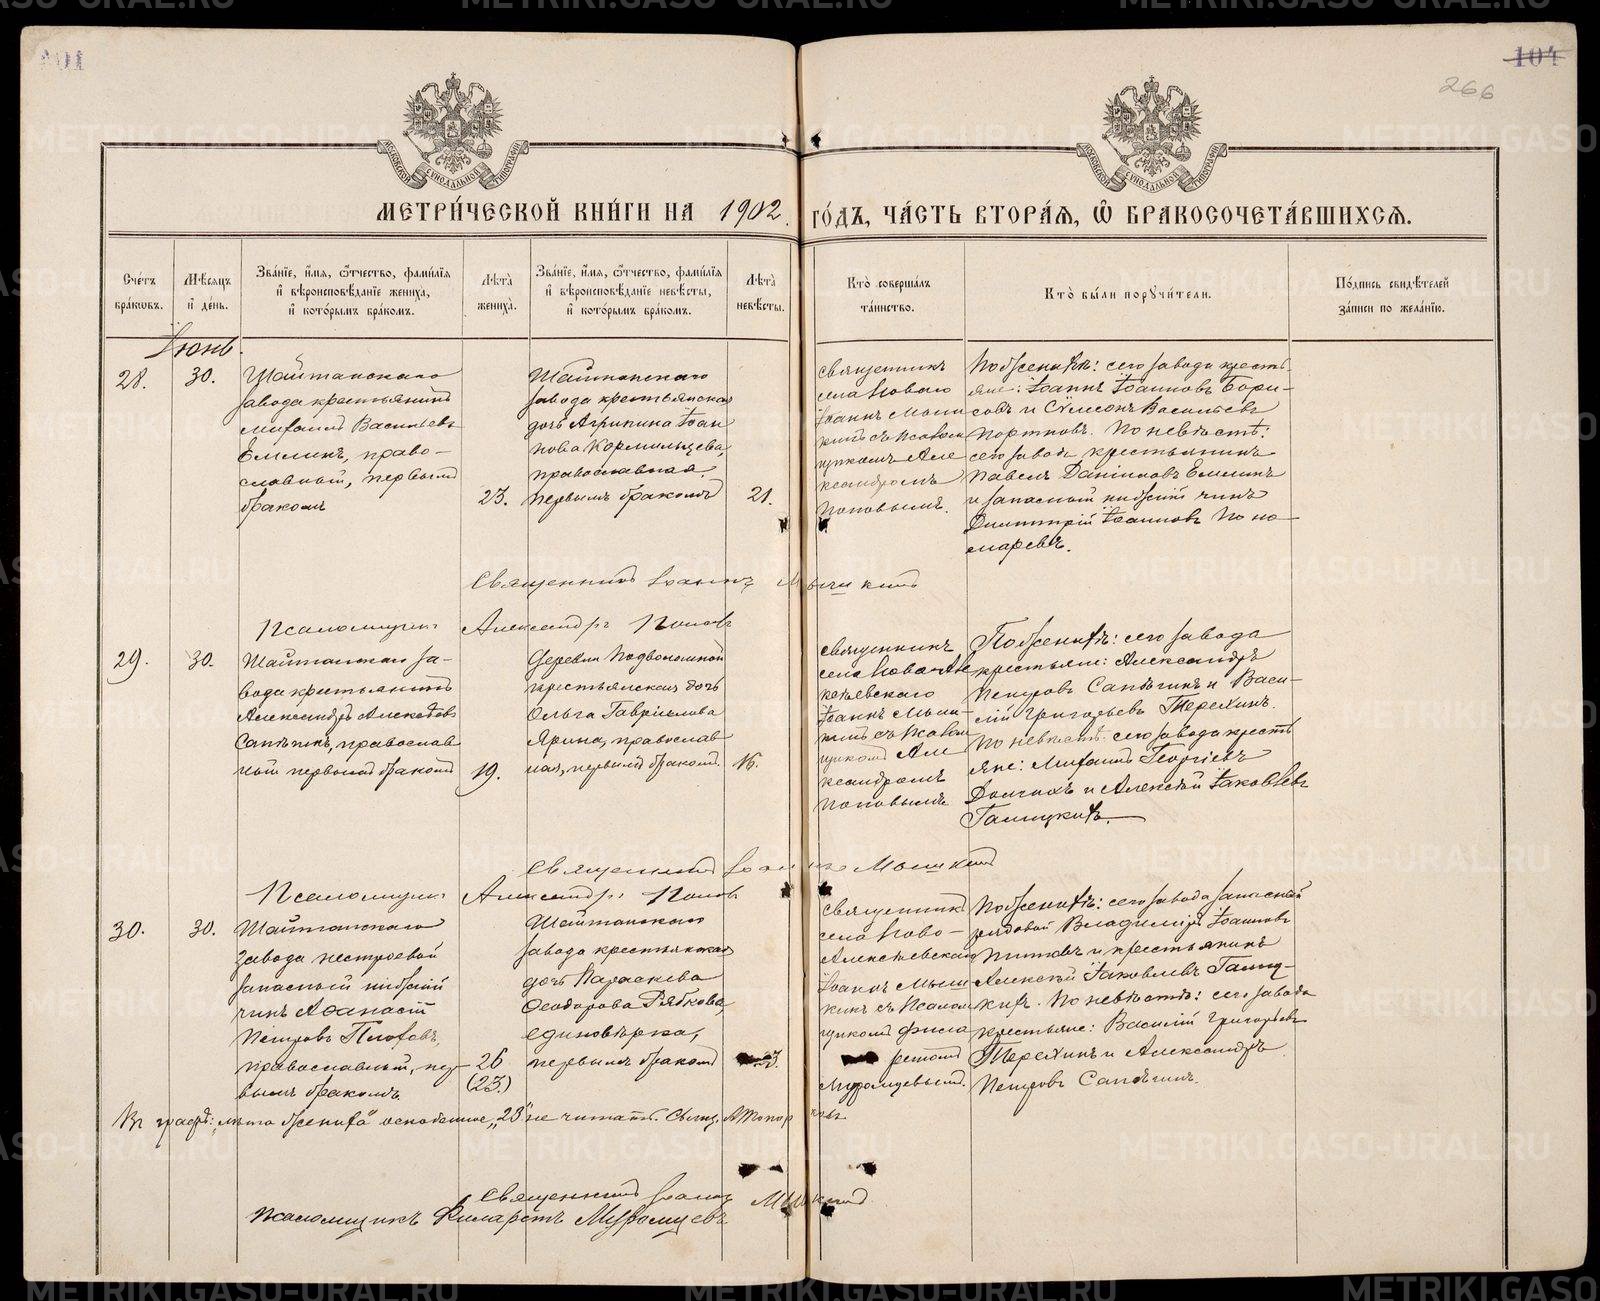 101
104
266
МЕТРИ́ЧЕСКОЙ КНИ́ГИ НА 1902 ГО́ДЪ, ЧА́СТЬ ВТОРА́Ѧ, Ѽ БРАКОСОЧЕТА́ВШИХСѦ.
Сче́тъ бра́кѡвъ.
Мѣ́сяцъ и҆ де́нь.
Зва́нїе, и҆́мя, ѻ҆́тчество, фами́лїя
и҆ вѣроисповѣ́данїе жениха̀,
и҆ кото́рымъ бра́комъ.
Лѣ́та жениха̀.
Зва́нїе, и҆́мя, ѻ҆́тчество, фами́лїя
и҆ вѣроисповѣ́данїе невѣ́сты,
и҆ кото́рымъ бра́комъ.
Лѣ́та невѣ́сты.
Кто̀ соверша́лъ
та́инство.
Кто̀ бы́ли порꙋчи́тели.
По́дпись свидѣ́телей
за́писи по жела́нїю.
Іюнь.
28.
30.
Шайтанскаго
завода крестьянинъ
Михаилъ Васильевъ
Емлинъ, право-
славный, первымъ
бракомъ
23.
Шайтанскаго
завода крестьянская
дочь Агрипина Іоан
нова Кормильцева,
православная
первымъ бракомъ
21.
священникъ
села Новаго
Іоаннъ Мыш
кинъ съ псалом
щикомъ Але
ксандромъ
Поповымъ.
По женихѣ: сего завода кресть
яне: Іоаннъ Іоанновъ Бори-
совъ и Сѵмеонъ Васильевъ
Портновъ. По невѣстѣ:
сего завода крестьянинъ
Павелъ Данииловъ Емлинъ
и запасный нижній чинъ
Димитрій Іоанновъ Поно-
маревъ.
Священникъ Іоаннъ Мышкинъ
Псаломщикъ Александръ Поповъ
29.
30.
Шайтанскаго за-
вода крестьянинъ
Александръ Алексѣевъ
Сапѣгинъ, православ
ный первымъ бракомъ
19.
Деревни Подволошной
крестьянская дочь
Ольга Гавріилова
Ярина, православ
ная, первымъ бракомъ.
16.
священникъ
села Ново-Але
ксѣевскаго
Іоаннъ Мыш-
кинъ съ псалом
щикомъ Але
ксандромъ
Поповымъ
По женихѣ: сего завода
крестьяне: Александръ
Петровъ Сапѣгинъ и Васи-
лій Григорьевъ Терехинъ.
По невѣстѣ: сего завода кресть
яне: Михаилъ Георгіевъ
Долгихъ и Алексѣй Іаковлевъ
Галицкихъ.
Священникъ Іоаннъ Мышкинъ
Псаломщикъ Александръ Поповъ
30.
30.
Шайтанскаго
завода нестроевой
запасный нижній
чинъ Аѳанасій
Петровъ
православный, пер-
вымъ бракомъ.
26
(23.)
Шайтанскаго
завода крестьянская
дочь Параскева
Ѳеодорова Рябкова,
единовѣрка,
первымъ бракомъ
священникъ
села Ново-
Алексѣевскаго
Іоаннъ Мыш
кинъ съ псалом
щикомъ Фила
ретомъ
Муромцевымъ.
По женихѣ: сего завода запасный
рядовой Владиміръ Іоанновъ
Титовъ и крестьянинъ
Алексѣй Іаковлевъ Галиц-
кихъ. По невѣстѣ: сего завода
крестьяне: Василій Григорьевъ
Терехинъ и Александръ
Петровъ Сапѣгинъ.
Въ графѣ: „лѣта жениха" „23" не читать. Свящ.
Священникъ Іоаннъ Мышкинъ
Псаломщикъ Филаретъ Муромцевъ
METRIKI.GASO-URAL.RU